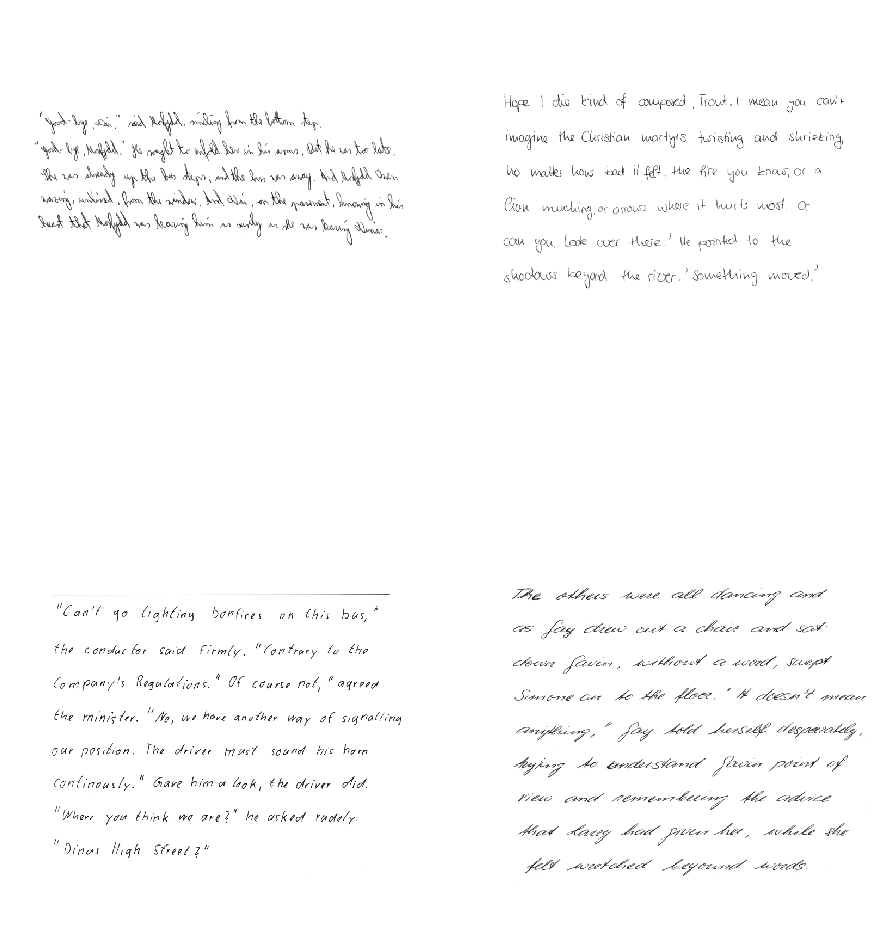 "Good-bye, Wai," said Mofydd, smiling from the bottom step.
"Good-bye, Mofydd." He sought to enfold her in his arms. But he was too late.
She was already up the bus steps, and the bus was away. And Mofydd was
waving, untired, from the window. And Wai, on the pavement, knowing in his
heart that Mofydd was leaving him as surely as she was leaving
Hope I die kind of composed, Trout. I mean you can't
imagine the Christian martyrs twisting and shrieking,
no matter how bad it felt, the fire you know, or a
lion munching, or arrows where it hurts most. Or
can you. Look over there.' He pointed to the
shadows beyond the river. 'Something moved.'
"Can't go lighting bonfires on this bus,"
the conductor said firmly. "Contrary to the
Company's Regulations." Of course not," agreed
the minister. "No, we have another way of signalling
our position. The driver must sound his horn
continously." Gave him a look, the driver did.
"Where you think we are?" he asked rudely.
"Dinas High Street?"
The others were all dancing and
as Gay drew out a chair and sat
down Gavin, without a word, swept
Simone on to the floor. "It doesn't mean
anything," Gay told herself desperately,
trying to understand Gavin point of
view and remembering the advice
that had given her, while she
felt wretched beyound words.